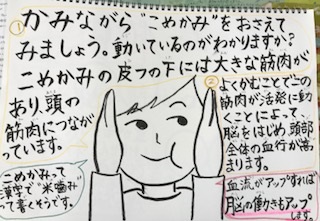 ①かみながら"こめかみ"をおさえて
みましょう。動いているのがわかりますか?
こめかみの皮フの下には大きな筋肉が
あり、頭の
筋肉につなが
っています。
②よくかむことでこの
筋肉が活発に動
くことによって、
脳をはじめ、頭部
全体の血行が高
まります。
こめかみって
漢字で"米噛み"
って書くそうです。
血流がアップすれば
脳の働きもアップ
します。